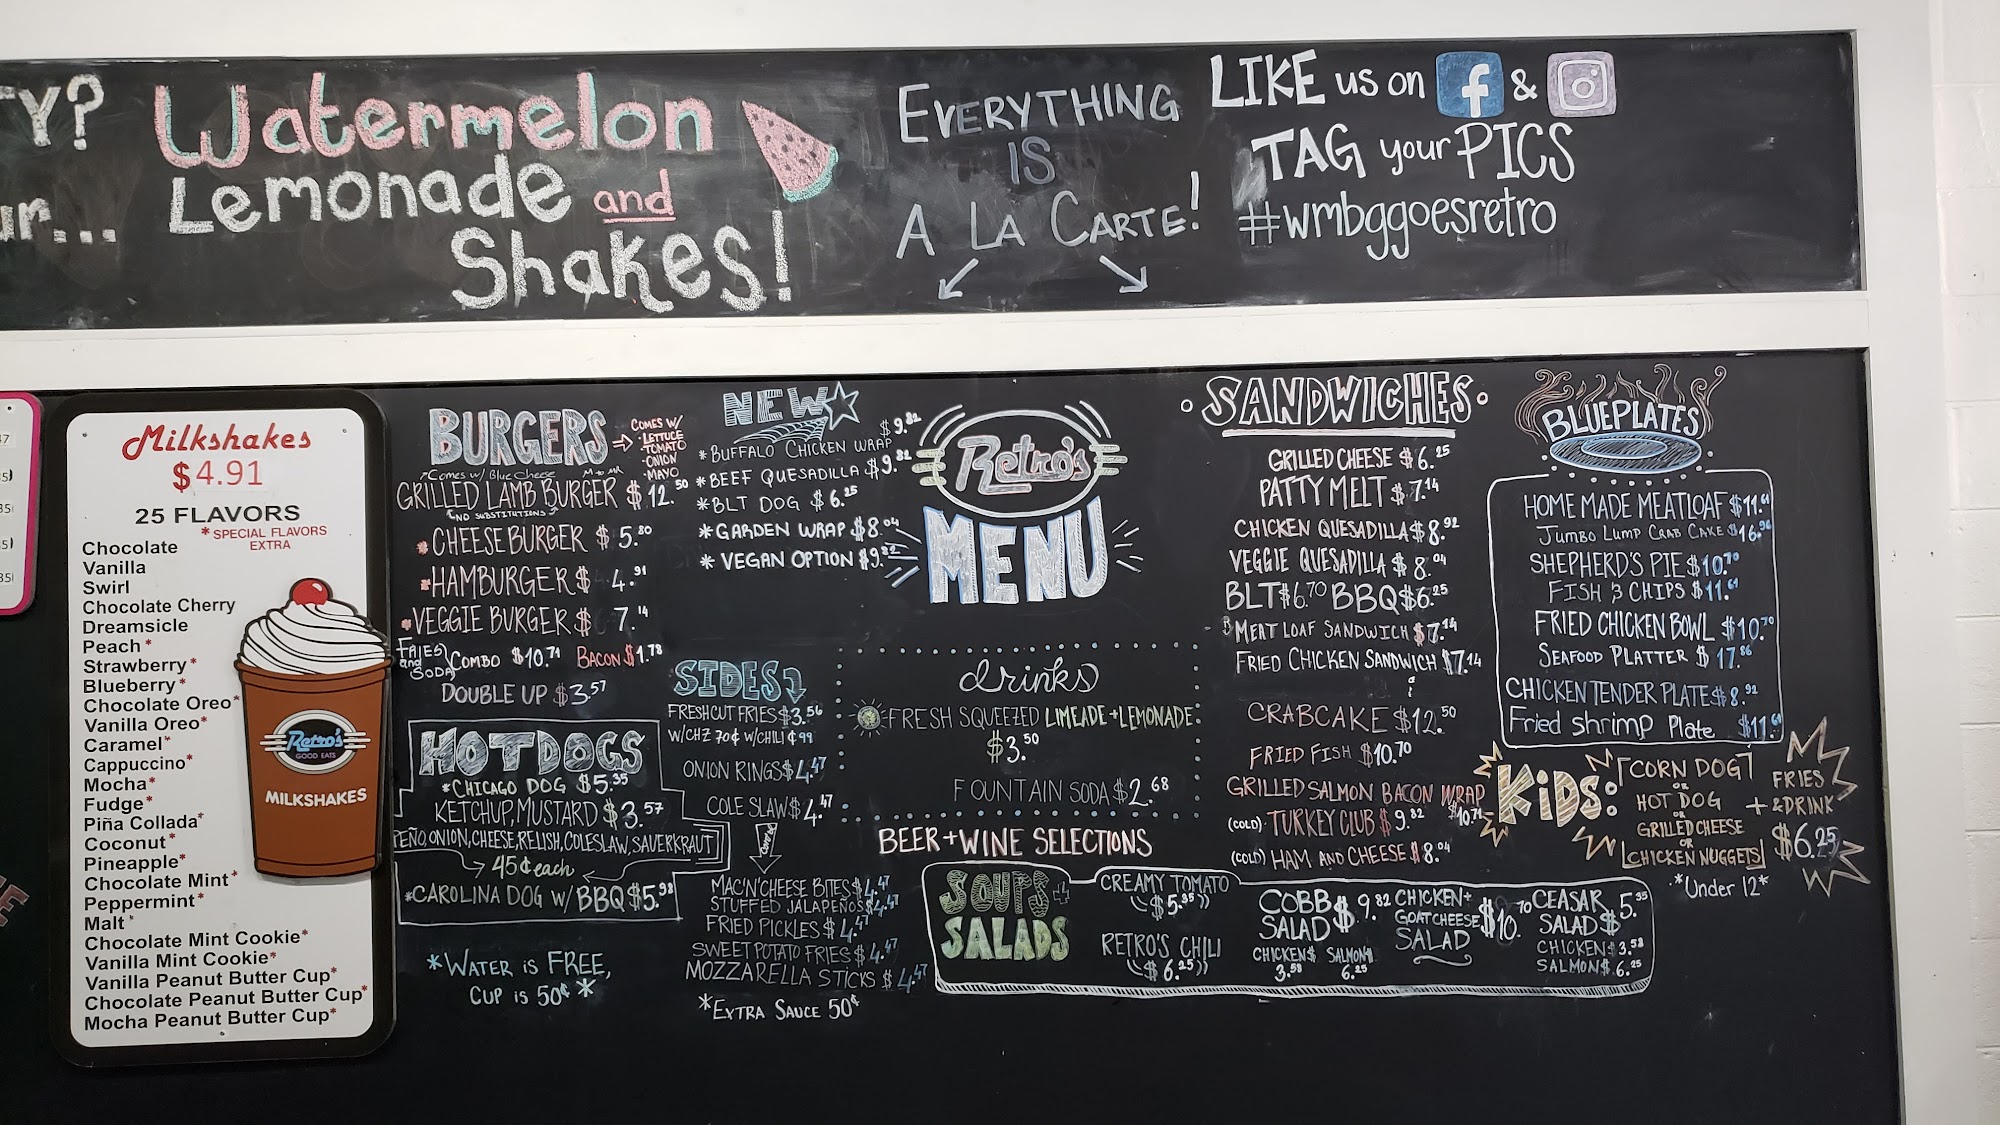 TY?
ur...
Watermelon
Lemonade and
Shakes!
EVERYTHING
IS
A LA CARTE!
LIKE us on f &
TAG your PICS
#wmbggoesretro
Milkshakes
$4.91
25 FLAVORS
*SPECIAL FLAVORS
EXTRA
Chocolate
Vanilla
Swirl
Chocolate Cherry
Dreamsicle
Peach*
Strawberry*
Blueberry*
Chocolate Oreo*
Vanilla Oreo*
Caramel*
Cappuccino*
Mocha*
Fudge*
Piña Collada*
Coconut*
Pineapple*
Chocolate Mint*
Peppermint*
Malt*
Chocolate Mint Cookie*
Vanilla Mint Cookie*
Vanilla Peanut Butter Cup*
Chocolate Peanut Butter Cup*
Mocha Peanut Butter Cup*
Retro's
GOOD EATS
MILKSHAKES
BURGERS
COMES W/
·LETTUCE
·TOMATO
·ONION
·MAYO
*Comes w/ Blue Cheese M to MR
GRILLED LAMB BURGER $12.50
*NO SUBSTITUTIONS*
*CHEESEBURGER $5.80
*HAMBURGER $4.91
*VEGGIE BURGER $7.14
FRIES and SODA COMBO $10.71 BACON $1.78
DOUBLE UP $3.57
HOTDOGS
*CHICAGO DOG $5.35
KETCHUP, MUSTARD $3.57
PEÑO, ONION, CHEESE, RELISH, COLESLAW, SAUERKRAUT
45¢ each
*CAROLINA DOG W/ BBQ $5.98
*WATER IS FREE,
CUP IS 50¢*
NEW
*BUFFALO CHICKEN WRAP $9.82
*BEEF QUESADILLA $9.82
*BLT DOG $6.25
*GARDEN WRAP $8.04
*VEGAN OPTION $9.82
SIDES
FRESHCUT FRIES $3.56
W/CHZ 70¢ W/CHILI ¢99
ONION RINGS $4.47
COLE SLAW $4.47
MAC'N'CHEESE BITES $4.47
STUFFED JALAPEÑOS $4.47
FRIED PICKLES $4.47
SWEET POTATO FRIES $4.47
MOZZARELLA STICKS $4.47
*EXTRA SAUCE 50¢
Retro's
MENU
drinks
FRESH SQUEEZED LIMEADE + LEMONADE
$3.50
FOUNTAIN SODA $2.68
BEER + WINE SELECTIONS
SOUPS +
SALADS
CREAMY TOMATO
$5.35
RETRO'S CHILI
$6.25
COBB SALAD $9.82
CHICKEN $3.58 SALMON $6.25
CHICKEN + GOAT CHEESE SALAD $10.70
CEASAR SALAD $5.35
CHICKEN $3.58
SALMON $6.25
·SANDWICHES·
GRILLED CHEESE $6.25
PATTY MELT $7.14
CHICKEN QUESADILLA $8.92
VEGGIE QUESADILLA $8.04
BLT $6.70 BBQ $6.25
MEAT LOAF SANDWICH $7.14
FRIED CHICKEN SANDWICH $7.14
CRABCAKE $12.50
FRIED FISH $10.70
GRILLED SALMON BACON WRAP $10.71
(COLD) TURKEY CLUB $9.82
(COLD) HAM AND CHEESE $8.04
BLUEPLATES
HOME MADE MEATLOAF $11.61
JUMBO LUMP CRAB CAKE $16.96
SHEPHERD'S PIE $10.70
FISH & CHIPS $11.61
FRIED CHICKEN BOWL $10.70
SEAFOOD PLATTER $17.86
CHICKEN TENDER PLATE $8.92
Fried shrimp Plate $11.61
KIDS:
CORN DOG
OR
HOT DOG
OR
GRILLED CHEESE
OR
CHICKEN NUGGETS
+ FRIES
& DRINK
$6.25
*Under 12*